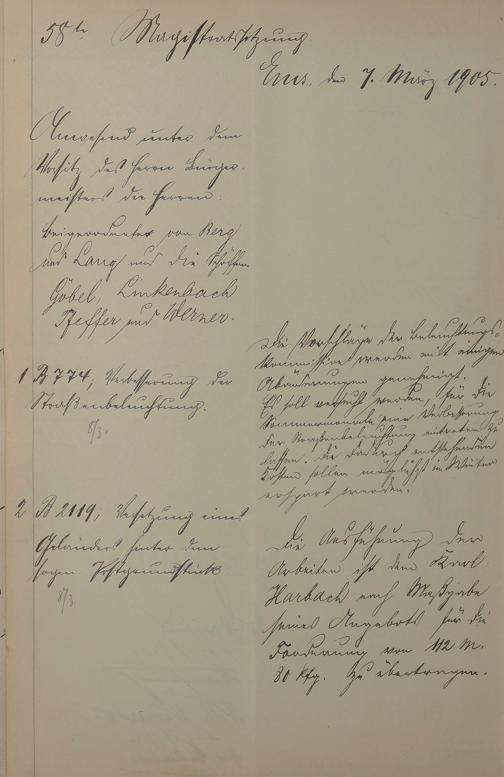 58te Magistratssitzung
Ems, den 7. März 1905.
Anwesend unter dem
Vorsitz des Herrn Bürger-
meisters die Herren:
Beigeordneter von Berg
und Lang und die Schöffen
Göbel, Linkenbach
Pfeffer und Werner.
1 B 774, Verbesserung der
Straßenbeleuchtung.
8/3.
Die Vorschläge der Beleuchtungs-
kommission werden mit einigen
Abänderungen genehmigt.
Es soll versucht werden, für die
Sommermonate eine Verbesserung
der Straßenbeleuchtung eintreten zu
lassen. Die dadurch entstehenden
Kosten sollen möglichst im Winter
erspart werden.
2 B 2119, Versetzung eines
Geländers hinter dem
sogen. Postgrundstück
8/3.
Die Ausführung der
Arbeiten ist dem Karl
Harbach nach Maßgabe
seines Angebots für die
Forderung von 112 M.
80 Pfg. zu übertragen.